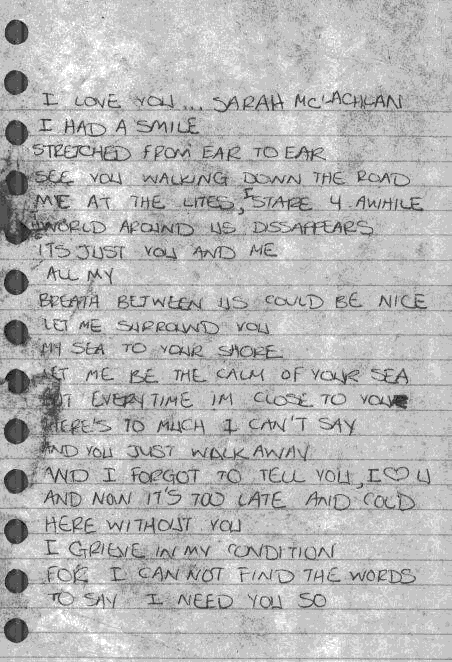 I LOVE YOU... SARAH MC'LACHLAN
I HAD A SMILE
STRETCHED FROM EAR TO EAR
SEE YOU WALKING DOWN THE ROAD
ME AT THE LITES, I STARE 4 AWHILE
WORLD AROUND US DISSAPPEARS
ITS JUST YOU AND ME
ALL MY
BREATH BETWEEN US COULD BE NICE
LET ME SURROUND YOU
MY SEA TO YOUR SHORE
LET ME BE THE CALM OF YOUR SEA
BUT EVERYTIME IM CLOSE TO YOU
THERE'S TO MUCH I CAN'T SAY
AND YOU JUST WALK AWAY
AND I FORGOT TO TELL YOU, I ♡ U
AND NOW IT'S TOO LATE AND COLD
HERE WITHOUT YOU
I GRIEVE IN MY CONDITION
FOR I CAN NOT FIND THE WORDS
TO SAY I NEED YOU SO